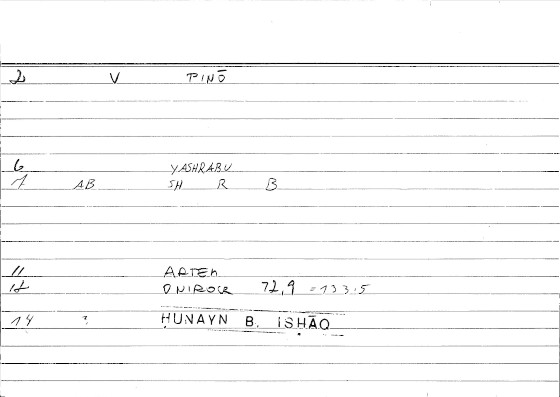 2 V PINŌ
6 YASHRABU
7 AB SH R B
11 ARTEM
12 ONIROCR 72,9 = 133.5
14 ? ḤUNAYN B. ISḤĀQ